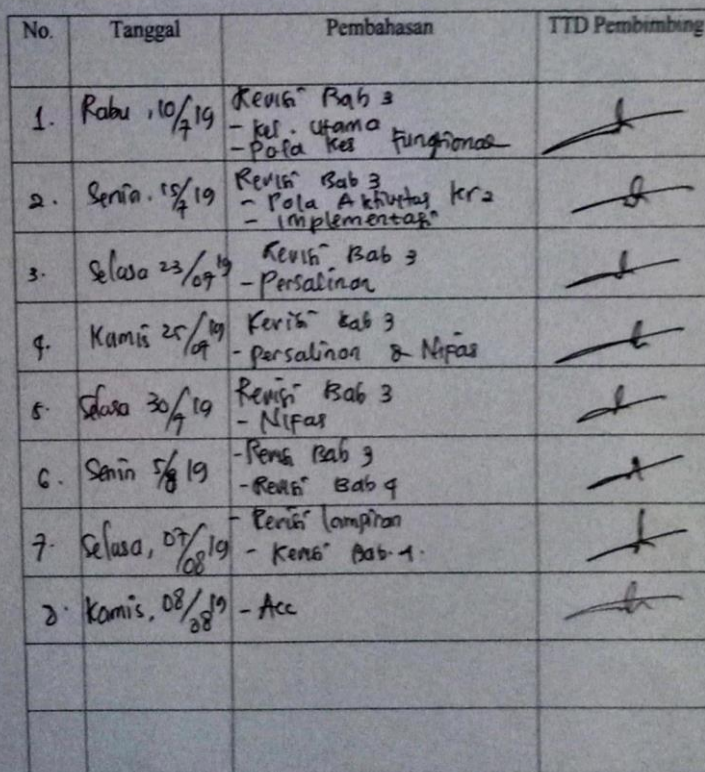 No. Tanggal Pembahasan TTD Pembimbing
1. Rabu, 10/7 19 Revisi Bab 3
- Kel. Utama
- Pola Kes Fungsional
2. Senin. 15/7 19 Revisi Bab 3
- Pola Aktivitas
- Implementasi
3. Selasa 23/07 19 Revisi Bab 3
- Persalinan
4. Kamis 25/07 19 Revisi Bab 3
- Persalinan & Nifas
5. Selasa 30/7 19 Revisi Bab 3
- Nifas
6. Senin 5/8 19 - Revisi Bab 3
- Revisi Bab 4
7. Selasa, 07/08 19 - Revisi lampiran
- Revisi Bab.
8. Kamis, 08/08 19 - Acc